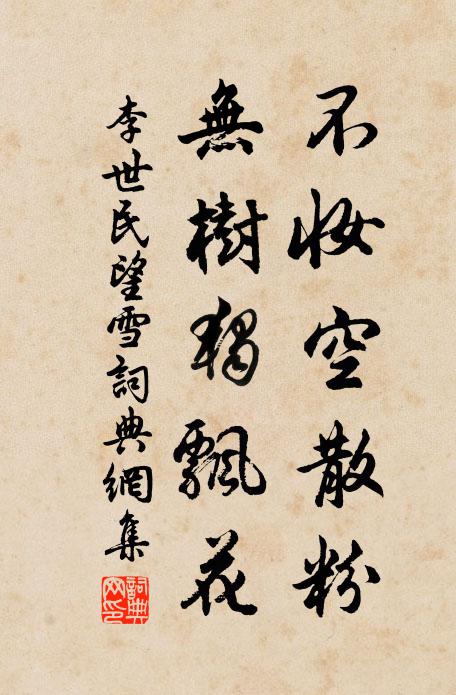 不妝空散粉
無樹獨飄花
李世民望雪詞典網集
詞典網印